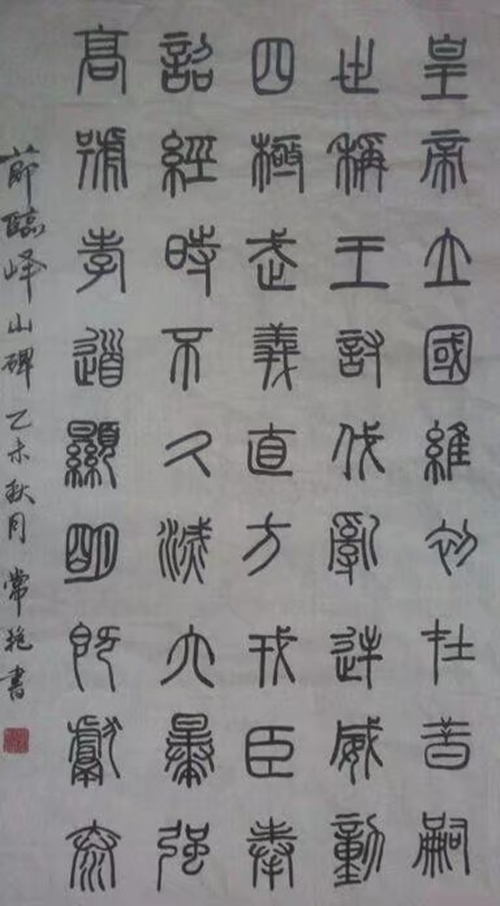 皇帝立國維初在昔嗣
世稱王討伐亂逆威動
四極武義直方戎臣奉
詔經時不久滅六暴強
高號孝道顯明既獻泰
節臨峄山碑 乙未秋月 常艳書